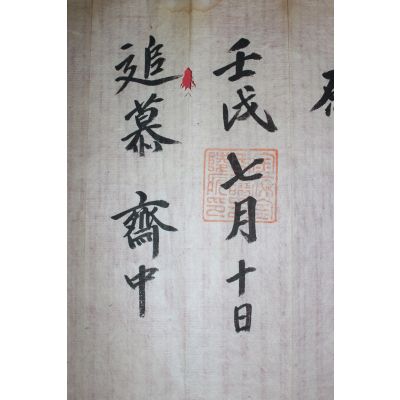 壬戌七月十日
追慕齋中